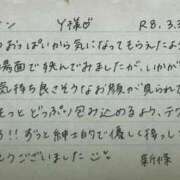 ン Y様♡ R8.3.3
おっぱいから気になってもらえたよう
場面で挟んでみましたが、いかが
気持ち良さそうなお顔が見られて
もっとどっぷり包み込めるよう、テク
う!!ずっと紳士的で優しく接し
とうございました
新様